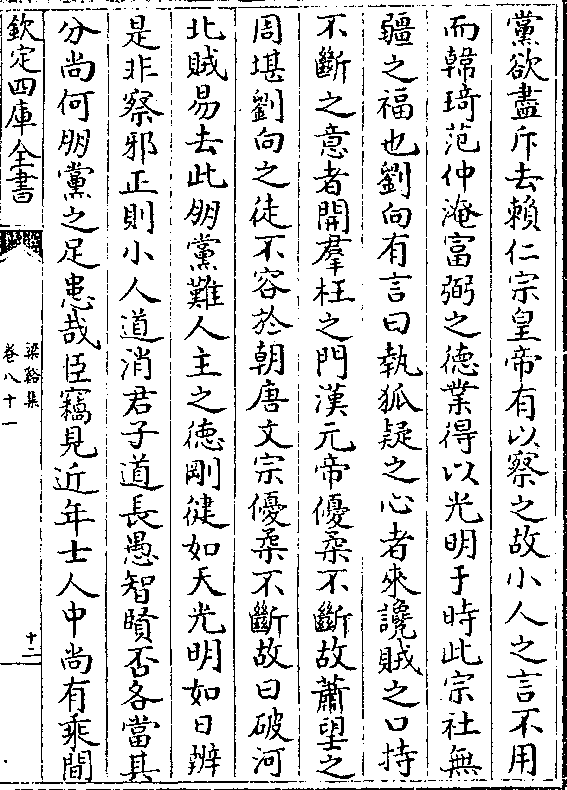 黨欲盡斥去賴仁宗皇帝有以察之故小人之言不用
而韓琦范仲淹富弼之德業得以光明于時此宗社無
疆之福也劉向有言曰執狐疑之心者來讒賊之口持
不斷之意者開羣枉之門漢元帝優柔不斷故蕭望之
周堪劉向之徒不容於朝唐文宗優柔不斷故曰破河
北賊易去此朋黨難人主之德剛健如天光明如日辨
是非察邪正則小人道消君子道長愚智賢否各當其
分尚何朋黨之足患哉臣竊見近年士人中尚有乘間
欽定四庫全書
梁谿集
卷八十一
十二